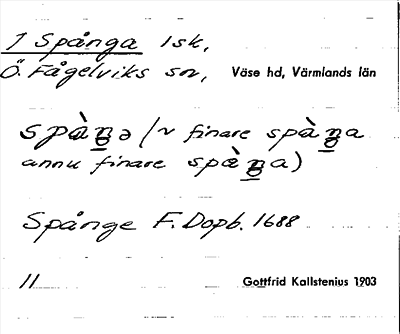 1 Spånga 1sk,
Ö. Fågelviks sn, Väse hd, Värmlands län
spàŋə (~ finare spàŋa
annu finare spàŋa)
Spånge F. Dopb. 1688
11 Gottfrid Kallstenius 1903